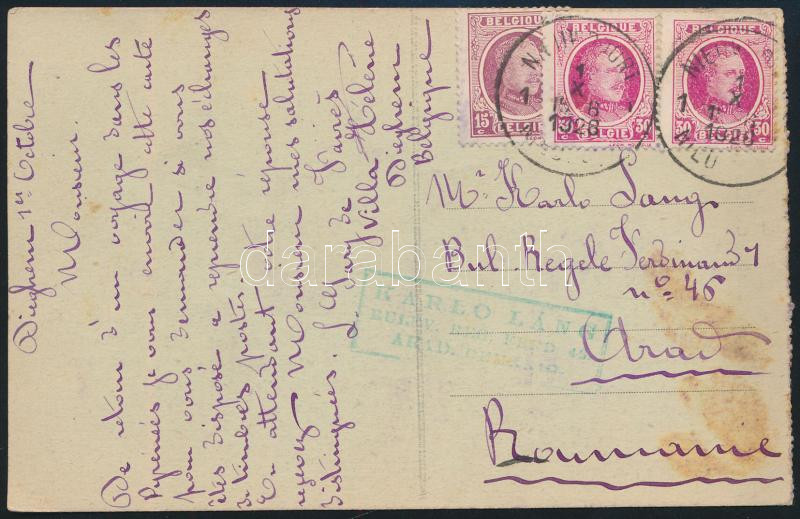 Dieghem 1er Octobre
Monsieur.
De retour d'un voyage dans les
Pyrenées je vous envoie cette carte
pour vous demander si vous
êtes disposé a reprendre nos échanges
de timbres postes.
En attendant votre réponse
recevez Monsieur mes salutations
distinguées.
Villa Hélène
Dieghem
Belgique
BELGIQUE
15c BELGIE 15c
BELGIQUE
30c BELGIE 30c
BELGIQUE
30c BELGIE 30c
1
X
1928
1
X
1928
Mr Karlo Lang
Bul Regele Ferdinand 1
no 46
Arad
Roumanie
KARLO LÁNG
ARAD
darabanth